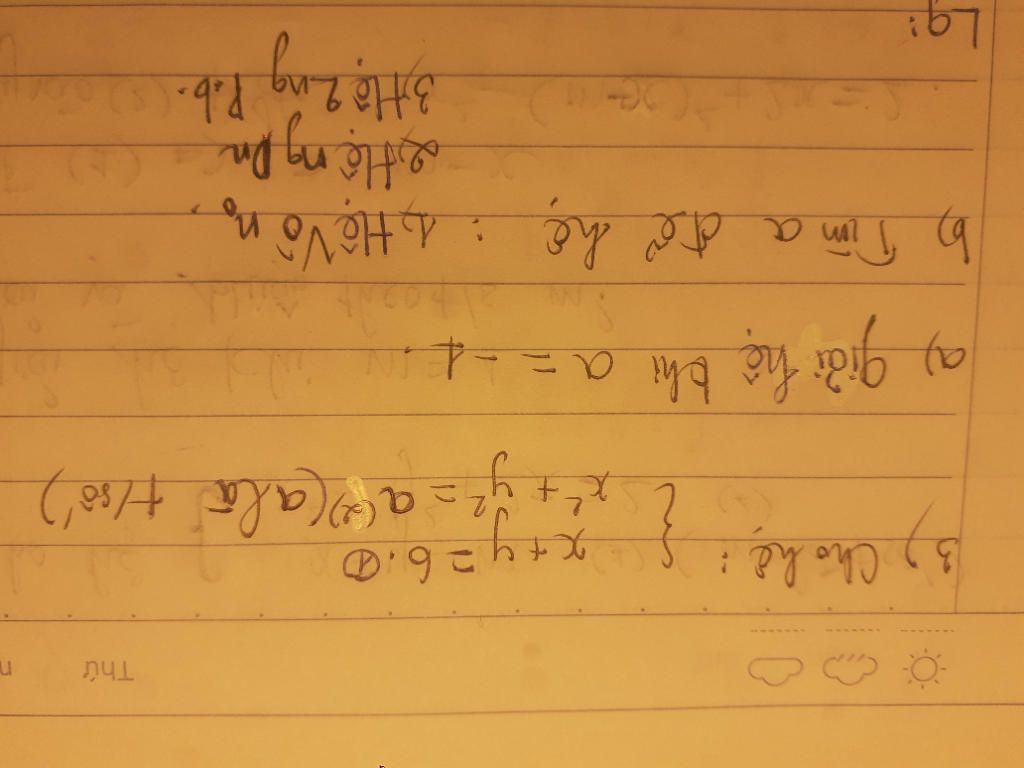 Thứ
3) Cho hệ: { x + y = 6. ①
x² + y² = a (2) (a là t/số)
a) giải hệ khi a = -1.
b) Tìm a để hệ : 1, Hệ Vô nº.
2, Hệ ng Dn
3, Hệ 2 ng P.b.
Lg: